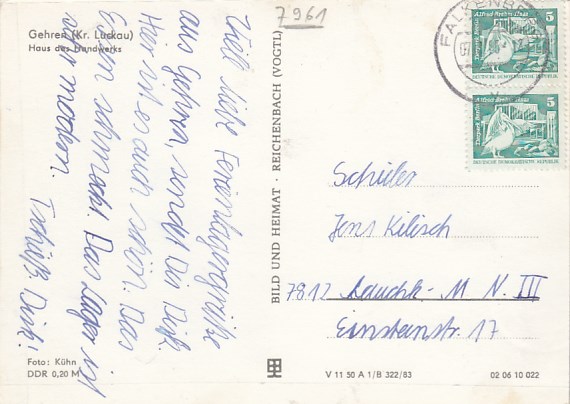 7961
Gehren (Kr. Luckau)
Haus des Handwerks
Viele liebe Ferienlagergrüße
aus Gehren, sendet Dir Dirk.
Hier ist es auch schön. Das
Essen schmeckt. Das Lager ist
sehr modern.
Tschüß Dirk!
Foto: Kühn
DDR 0,20 M
BILD UND HEIMAT · REICHENBACH (VOGTL)
5
DEUTSCHE DEMOKRATISCHE REPUBLIK
Tierpark Berlin Alfred Brehm Haus
5
DEUTSCHE DEMOKRATISCHE REPUBLIK
Schüler
Jens Kilisch
7812 Lauchh. M N. III
Einsteinstr. 17
V 11 50 A 1/B 322/83
02 06 10 022